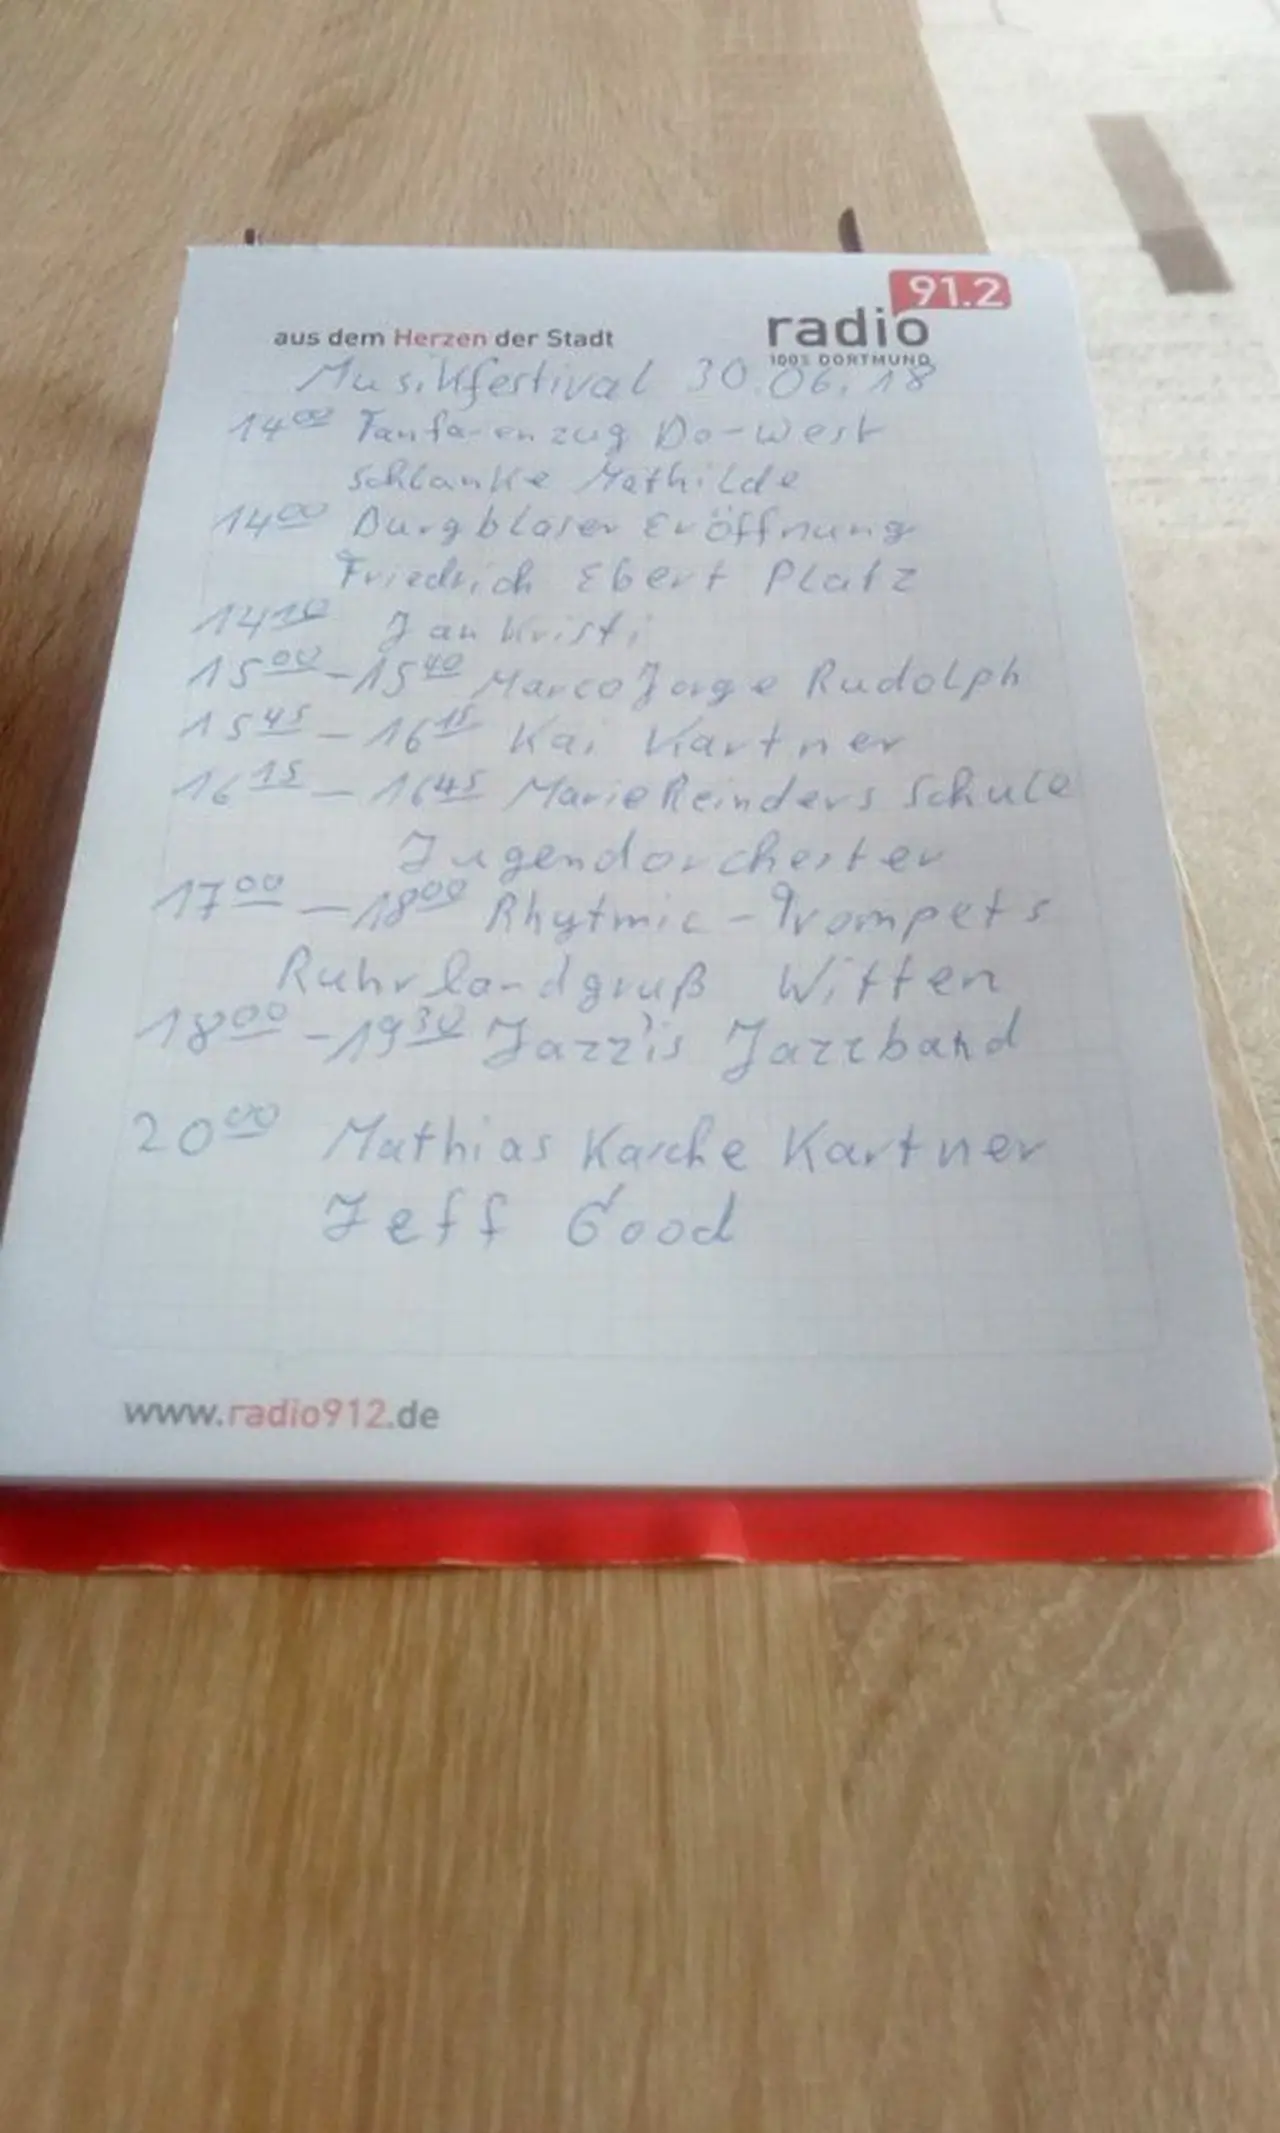 91.2
radio
100% DORTMUND
aus dem Herzen der Stadt
Musikfestival 30.06.18
14 00 Fanfarenzug Do-West
Schlanke Mathilde
14 00 Burgbläser Eröffnung
Friedrich Ebert Platz
14 10 Jan Kristi
15 00 - 15 40 Marco Jorge Rudolph
15 45 - 16 15 Kai Kartner
16 15 - 16 45 Marie Reinders Schule
Jugendorchester
17 00 - 18 00 Rhytmic - Trompets
Ruhrlandgruß Witten
18 00 - 19 30 Jazz'is Jazzband
20 00 Mathias Kasche Kartner
Jeff Good
www.radio912.de